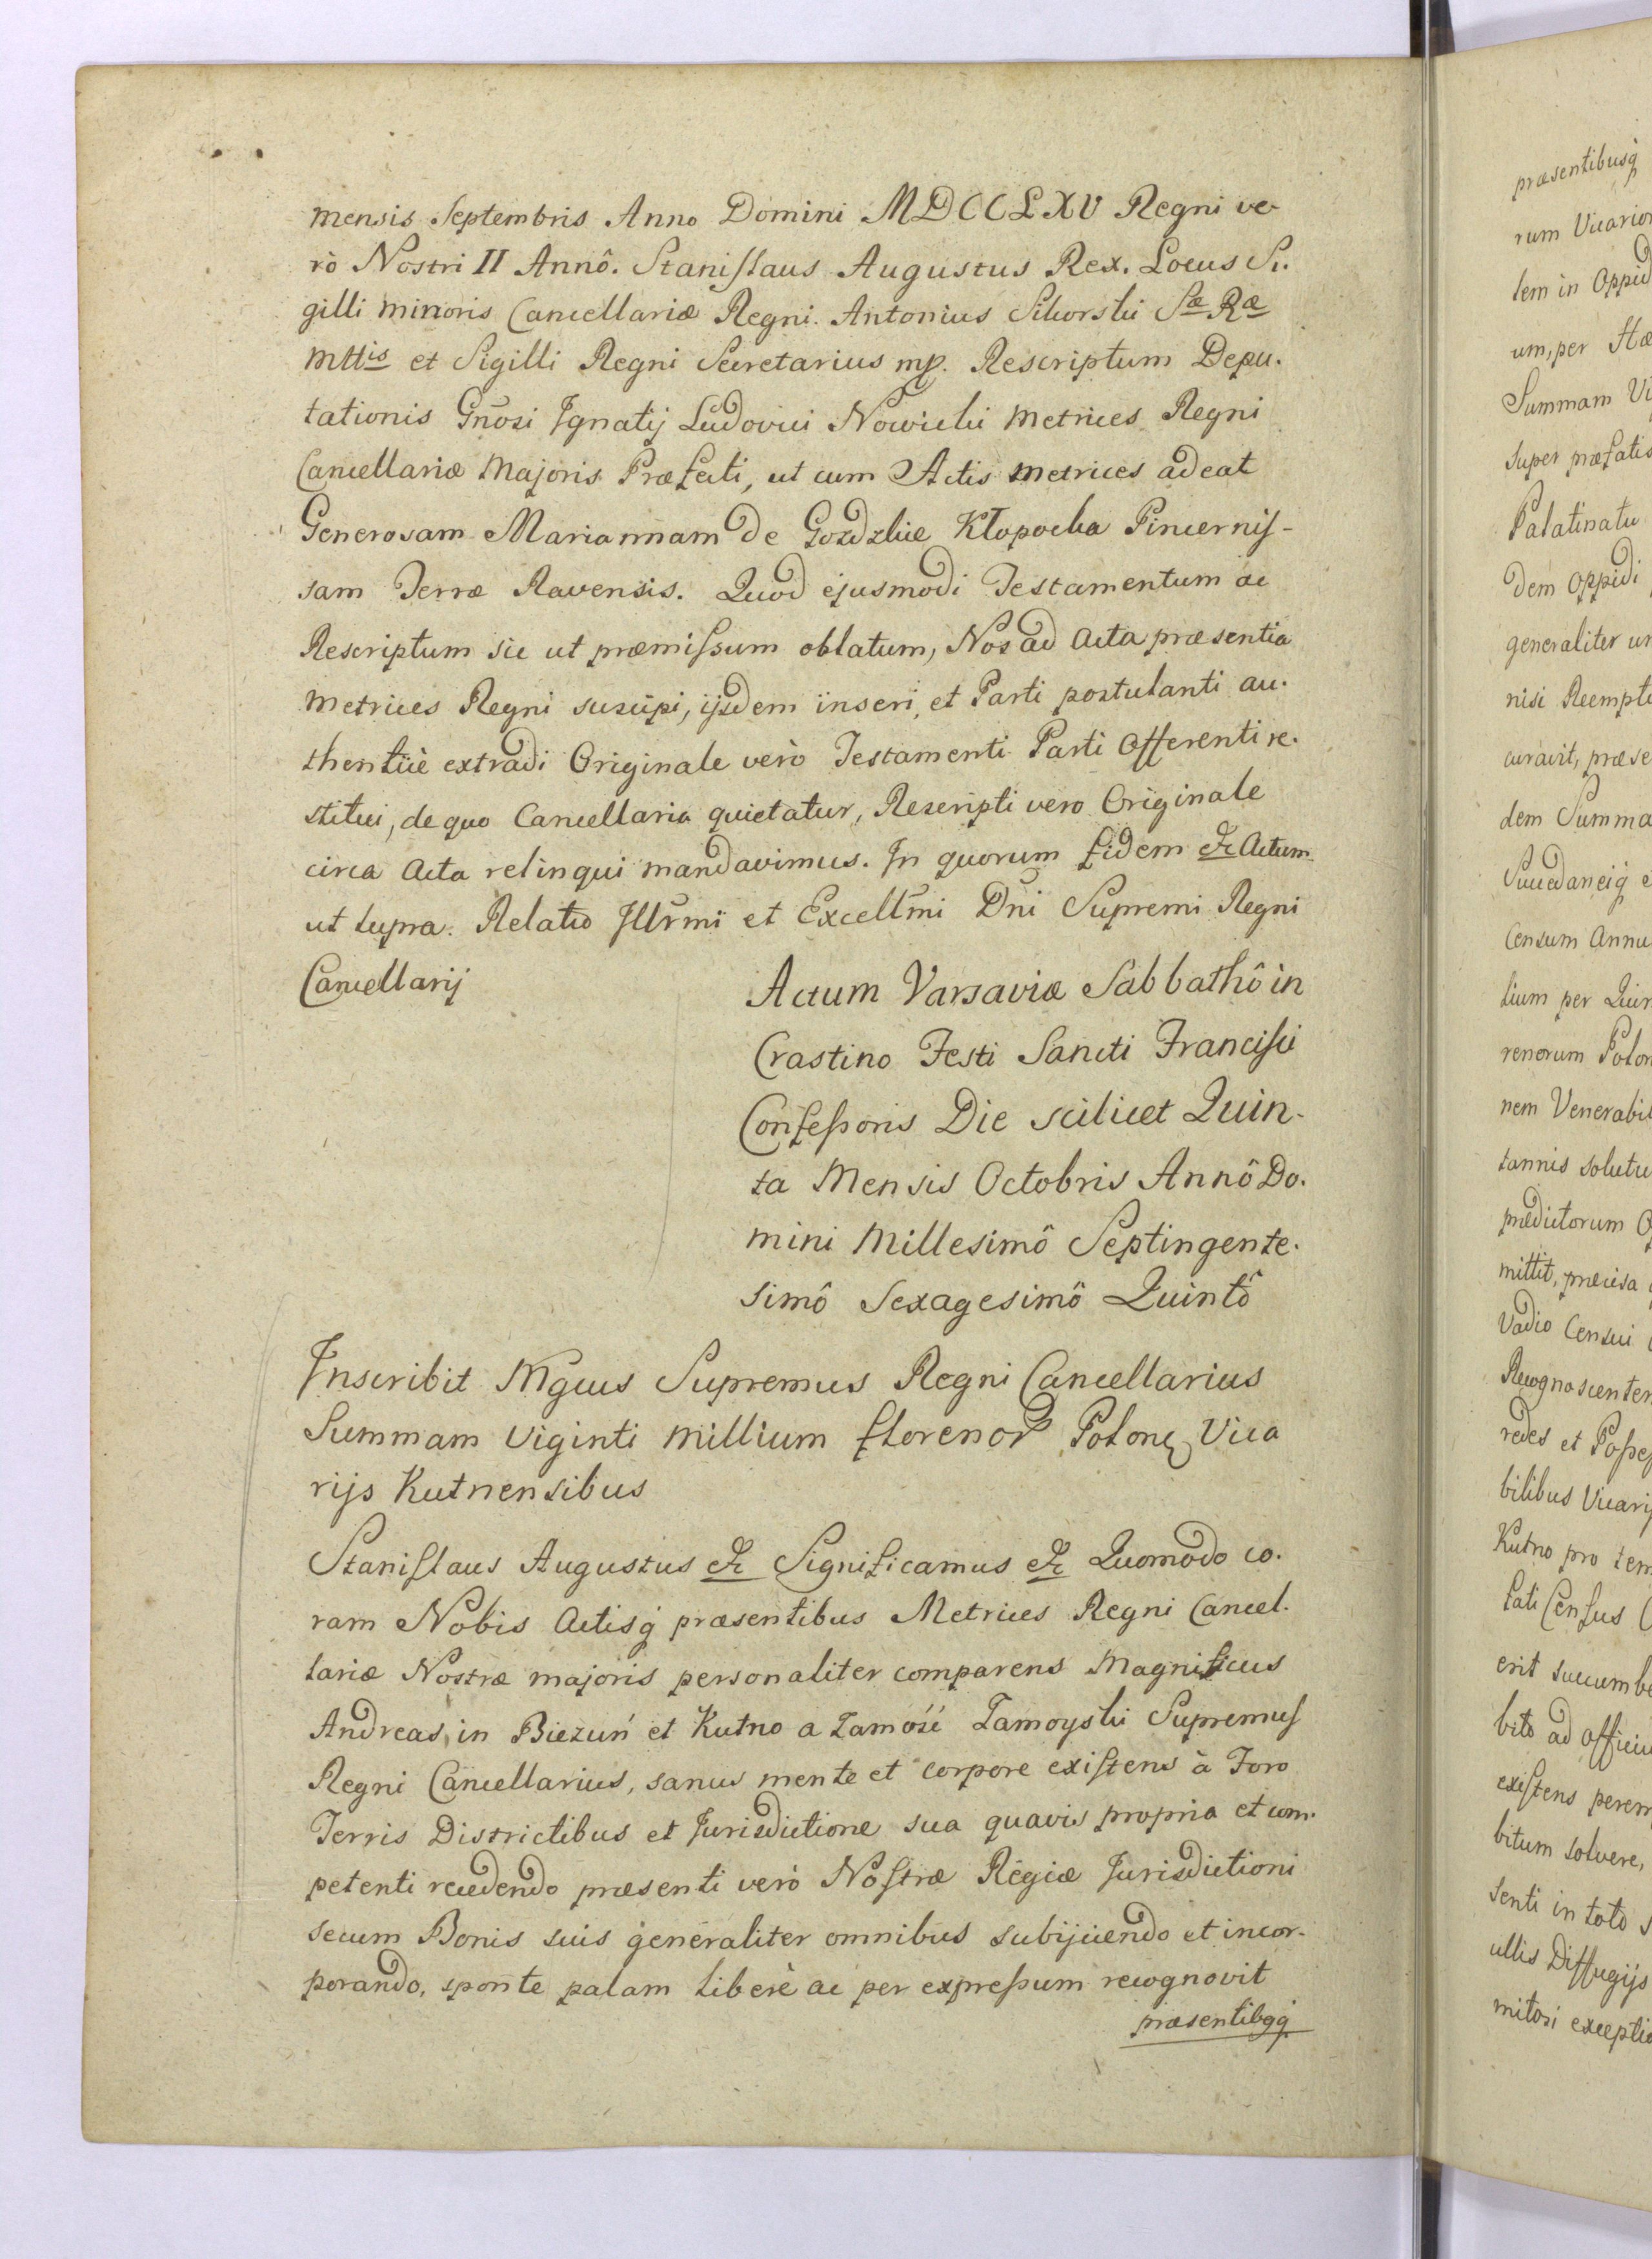 mensis Septembris Anno Domini MDCCLXV Regni ve-
rò Nostri II Annô. Stanislaus Augustus Rex. Locus Si-
gilli minoris Cancellariæ Regni. Antonius Sikorski Sæ Ræ
Mttis et Sigilli Regni Secretarius mp. Rescriptum Depu-
tationis Gnosi Ignatij Ludovici Nowicki Metrices Regni
Cancellariæ Majoris Præfecti, ut cum Actis Metrices adeat
Generosam Mariannam de Gozdzkie Kłopocka Pincernis-
sam Terræ Ravensis. Quod ejusmodi Testamentum ac
Rescriptum sic ut præmissum oblatum, Nos ad Acta præsentia
Metrices Regni suscipi, ijsdem inseri, et Parti postulanti au-
thenticè extradi Originale verò Testamenti Parti Offerenti re-
stitui, de quo Cancellaria quietatur, Rescripti vero Originale
circa Acta relinqui mandavimus. In quorum fidem etc Actum
ut supra. Relatio Illrmi et Excellmi Dni Supremi Regni
Cancellarij
Actum Varsaviæ Sabbathô in
Crastino Festi Sancti Francisci
Confessoris Die scilicet Quin-
ta Mensis Octobris Annô Do-
mini Millesimô Septingente-
simô Sexagesimô Quintô
Inscribit Mgcus Supremus Regni Cancellarius
Summam Viginti Millium florenor Polon Vica
rijs Kutnensibus
Stanislaus Augustus etc Significamus etc Quomodo co-
ram Nobis Actisq præsentibus Metrices Regni Cancel-
lariæ Nostræ majoris personaliter comparens Magnificus
Andreas in Biezuń et Kutno a Zamość Zamoyski Supremus
Regni Cancellarius, sanus mente et corpore existens à Foro
Terris Districtibus et Jurisdictione sua quavis propria et com-
petenti recedendo præsenti verò Nostræ Regiæ Jurisdictioni
secum Bonis suis generaliter omnibus subijciendo et incor-
porando, sponte palam liberè ac per expressum recognovit
præsentibqq
præsentibusq
rum Vicarior
tem in Oppid
um, per
Summam Vi
super præfatis
Palatinatu
dem Oppidi
generaliter
nisi Reempt
curavit, præse
dem Summa
Succedaneiq
Censum Annu
lium per
renorum Polon
nem Venerabil
tannis solutu
prædictorum
mittit, præcisa
Vadio Censui
Recognoscenten
redes et Posses
bilibus Vicarij
Kutno pro tem
fati Census
erit succumbe
bito ad Officiu
existens perem
bitum solvere,
senti in toto
ullis Diffugijs
mitori exceptio